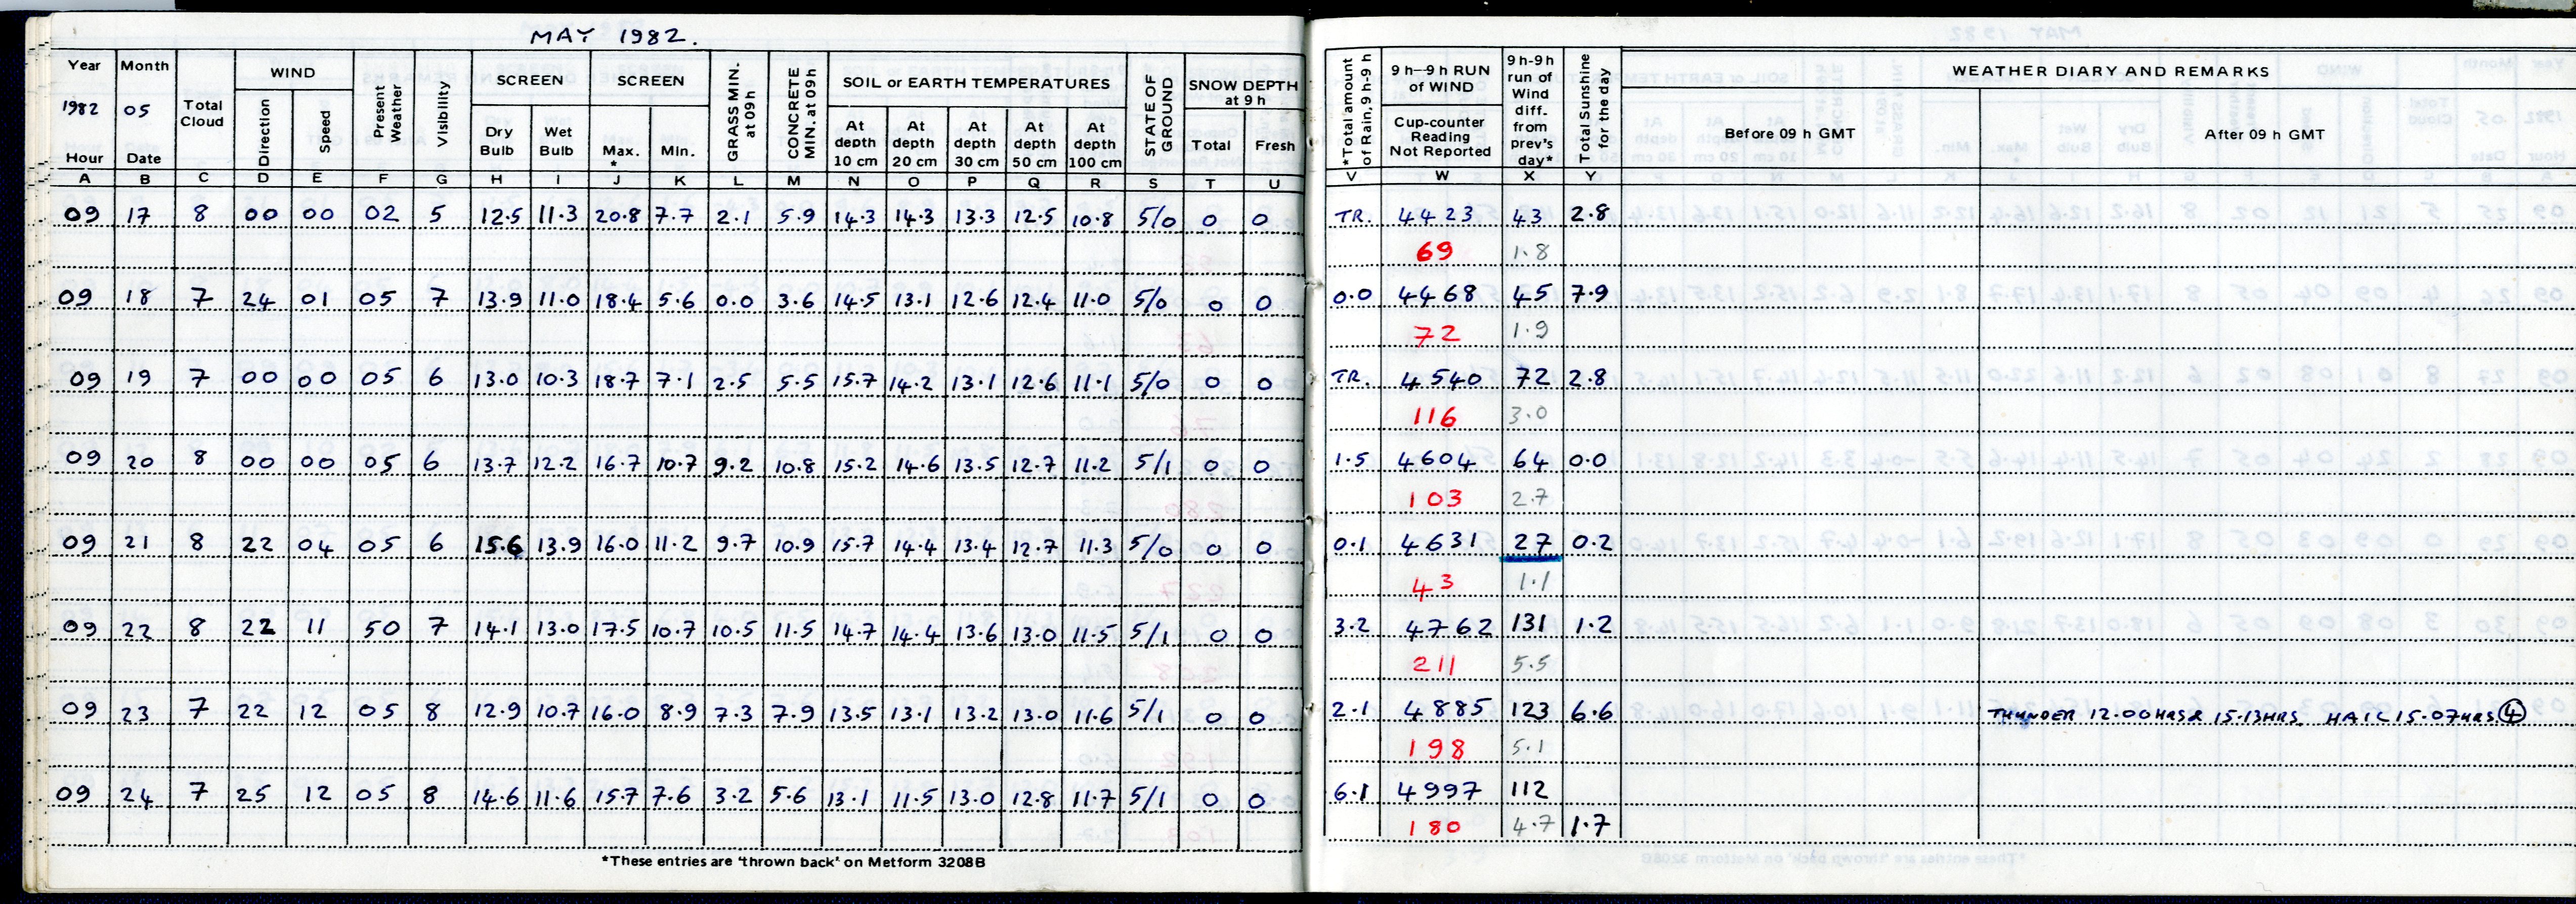 MAY 1982.
Year Month Total Cloud WIND Present Weather Visibility SCREEN SCREEN GRASS MIN. at 09h CONCRETE MIN. at 09h SOIL or EARTH TEMPERATURES STATE OF GROUND SNOW DEPTH at 9 h *Total amount of Rain, 9 h-9 h 9 h—9 h RUN of WIND 9 h-9h run of Wind diff. from prev's day* Total Sunshine for the day WEATHER DIARY AND REMARKS
1982 05 Direction Speed Dry Bulb Wet Bulb Max. * Min. At depth 10 cm At depth 20 cm At depth 30 cm At depth 50 cm At depth 100 cm Total Fresh Cup-counter Reading Not Reported Before 09 h GMT After 09 h GMT
Hour Date
A B C D E F G H I J K L M N O P Q R S T U V W X Y
09 17 8 00 00 02 5 12.5 11.3 20.8 7.7 2.1 5.9 14.3 14.3 13.3 12.5 10.8 5/0 0 0 TR. 4423 43 2.8
69 1.8
09 18 7 24 01 05 7 13.9 11.0 18.4 5.6 0.0 3.6 14.5 13.1 12.6 12.4 11.0 5/0 0 0 0.0 4468 45 7.9
72 1.9
09 19 7 00 00 05 6 13.0 10.3 18.7 7.1 2.5 5.5 15.7 14.2 13.1 12.6 11.1 5/0 0 0 TR. 4540 72 2.8
116 3.0
09 20 8 00 00 05 6 13.7 12.2 16.7 10.7 9.2 10.8 15.2 14.6 13.5 12.7 11.2 5/1 0 0 1.5 4604 64 0.0
103 2.7
09 21 8 22 04 05 6 15.6 13.9 16.0 11.2 9.7 10.9 15.7 14.4 13.4 12.7 11.3 5/0 0 0 0.1 4631 27 0.2
43 1.1
09 22 8 22 11 50 7 14.1 13.0 17.5 10.7 10.5 11.5 14.7 14.4 13.6 13.0 11.5 5/1 0 0 3.2 4762 131 1.2
211 5.5
09 23 7 22 12 05 8 12.9 10.7 16.0 8.9 7.3 7.9 13.5 13.1 13.2 13.0 11.6 5/1 0 0 2.1 4885 123 6.6 THUNDER 12.00HRS & 15.13HRS. HAIL 15.07HRS ④
198 5.1
09 24 7 25 12 05 8 14.6 11.6 15.7 7.6 3.2 5.6 13.1 11.5 13.0 12.8 11.7 5/1 0 0 6.1 4997 112
180 4.7 1.7
*These entries are 'thrown back' on Metform 3208B